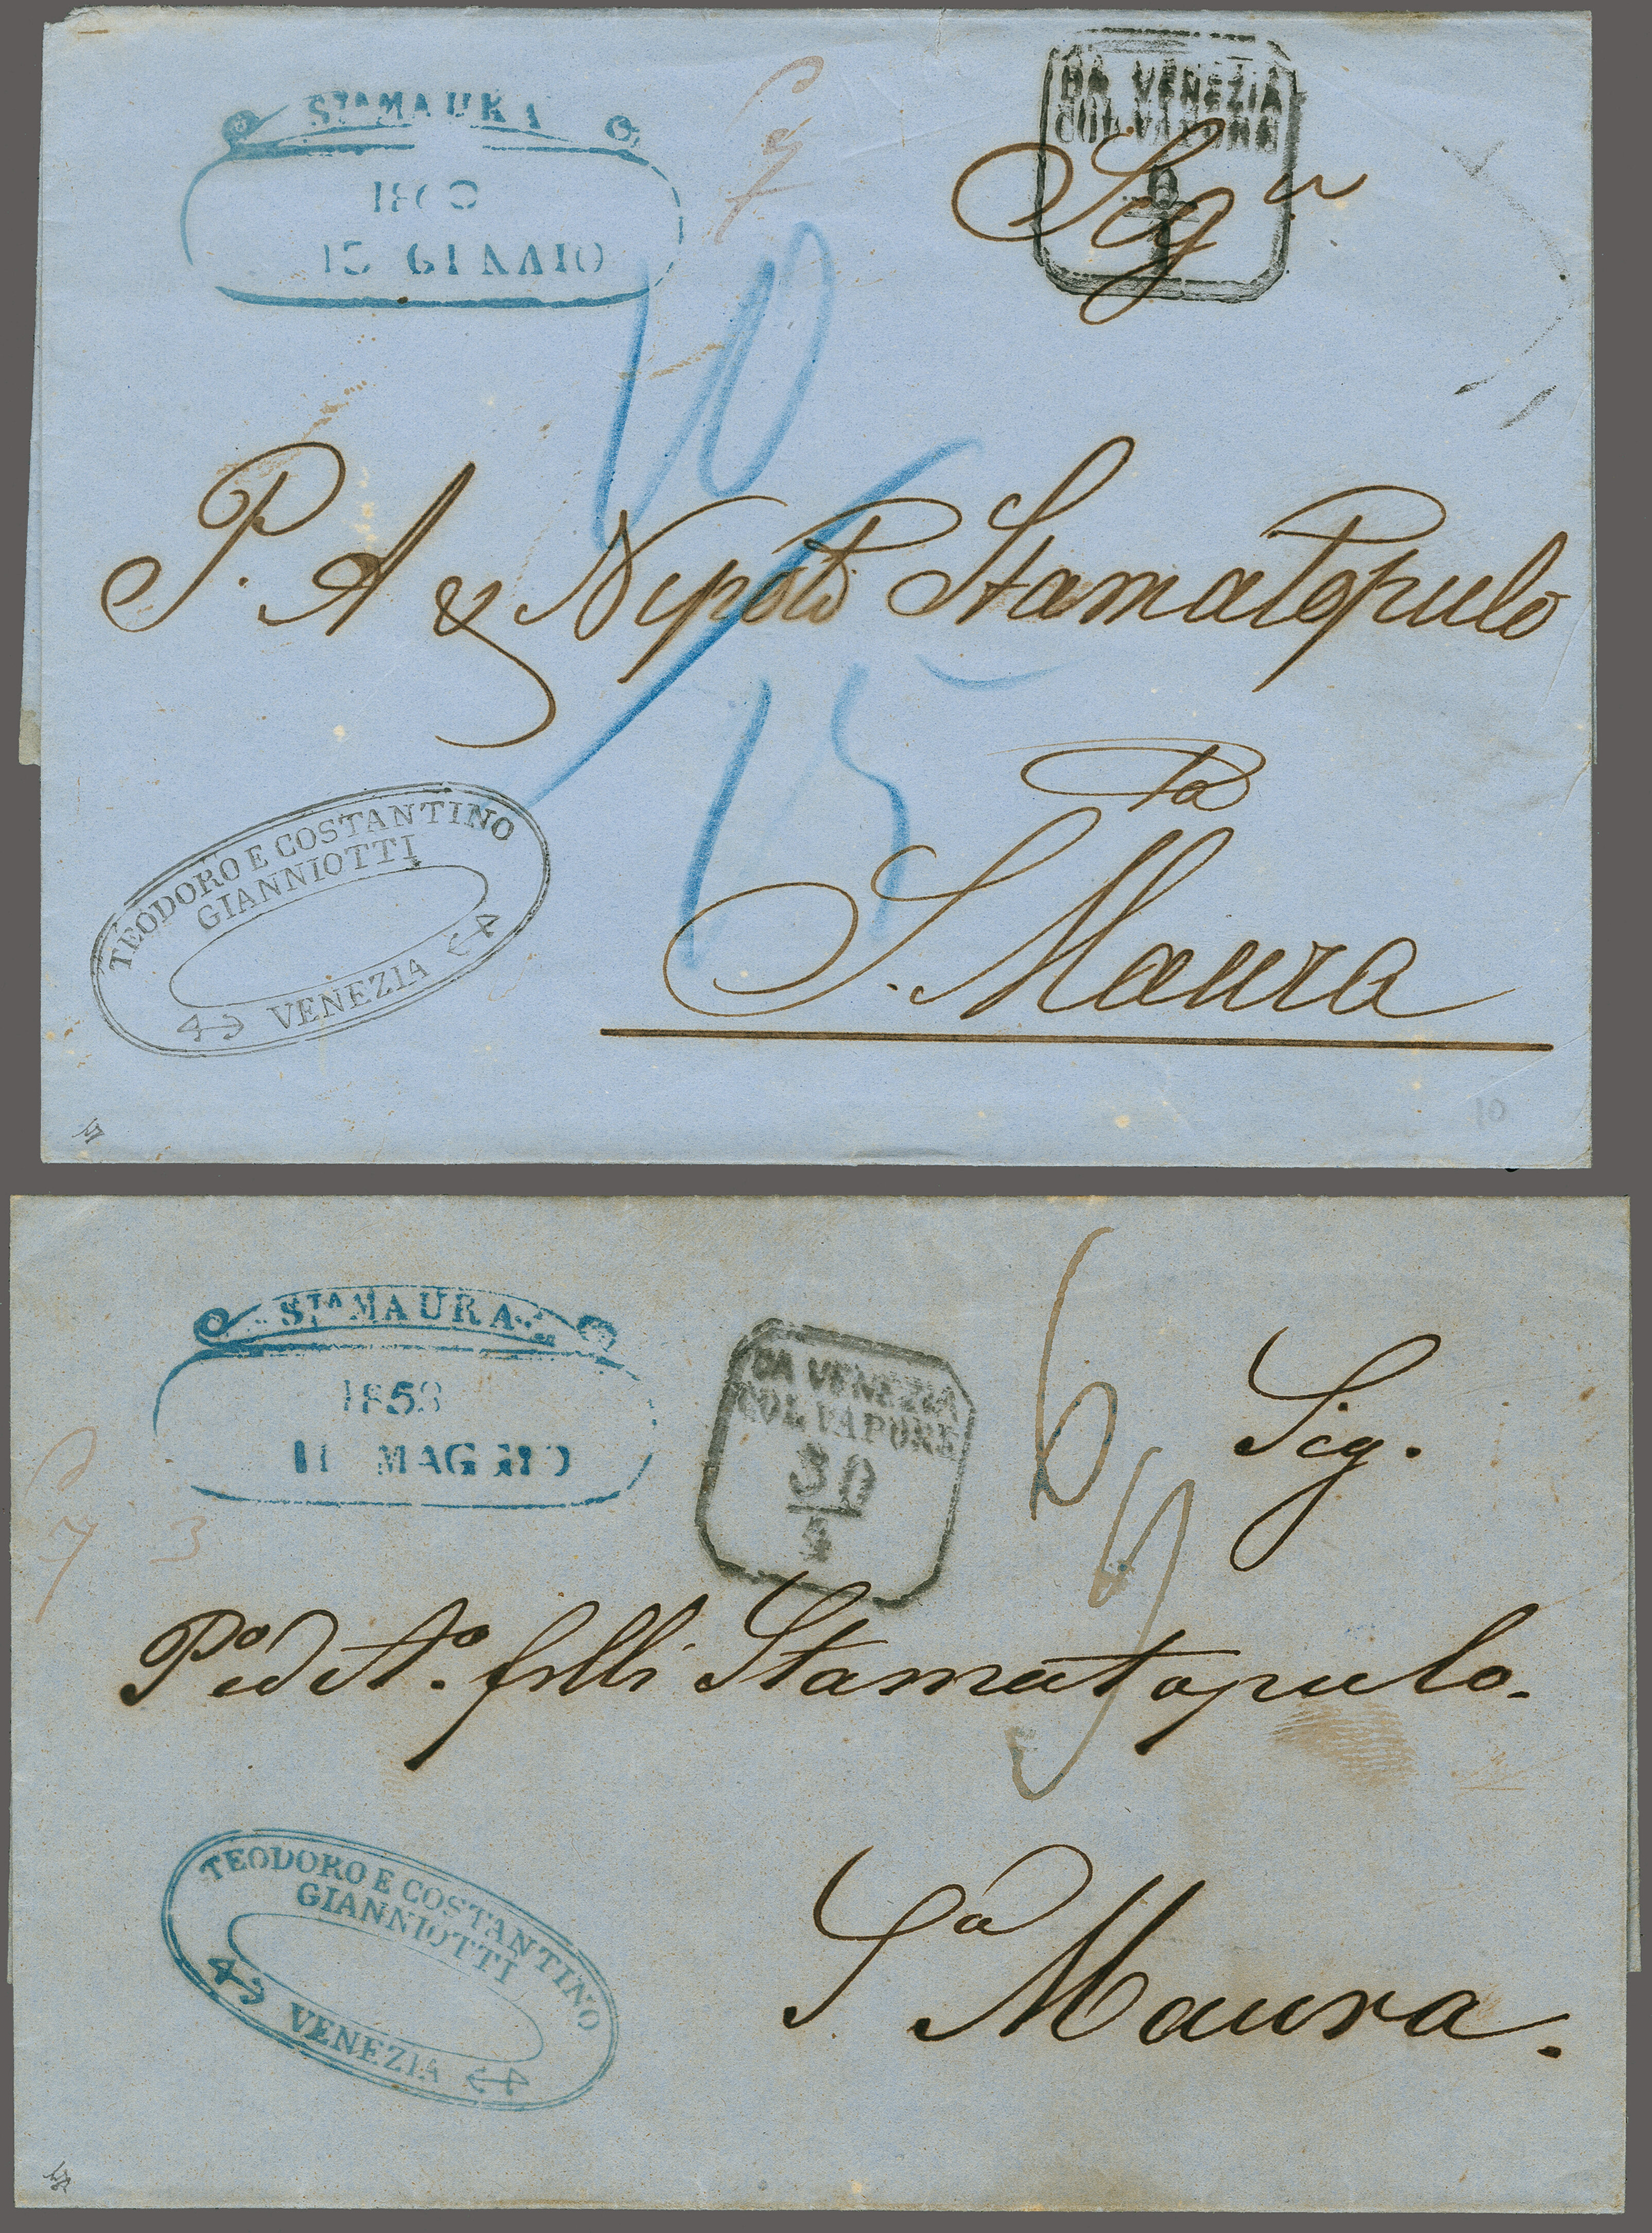 STA MAURA
DA VENEZIA
COL VAPORE
6
1
Sigri
10
P. A & Nipoti Stamatopulo
15
TEODORO E COSTANTINO
GIANNIOTTI
VENEZIA
S. Maura
10
STA MAURA
1853
11 MAGGIO
DA VENEZIA
COL VAPORE
30
4
6
Sig.
3
Po ed Ao. frlli Stamatopulo.
Sa Maura.
TEODORO E COSTANTINO
GIANNIOTTI
VENEZIA